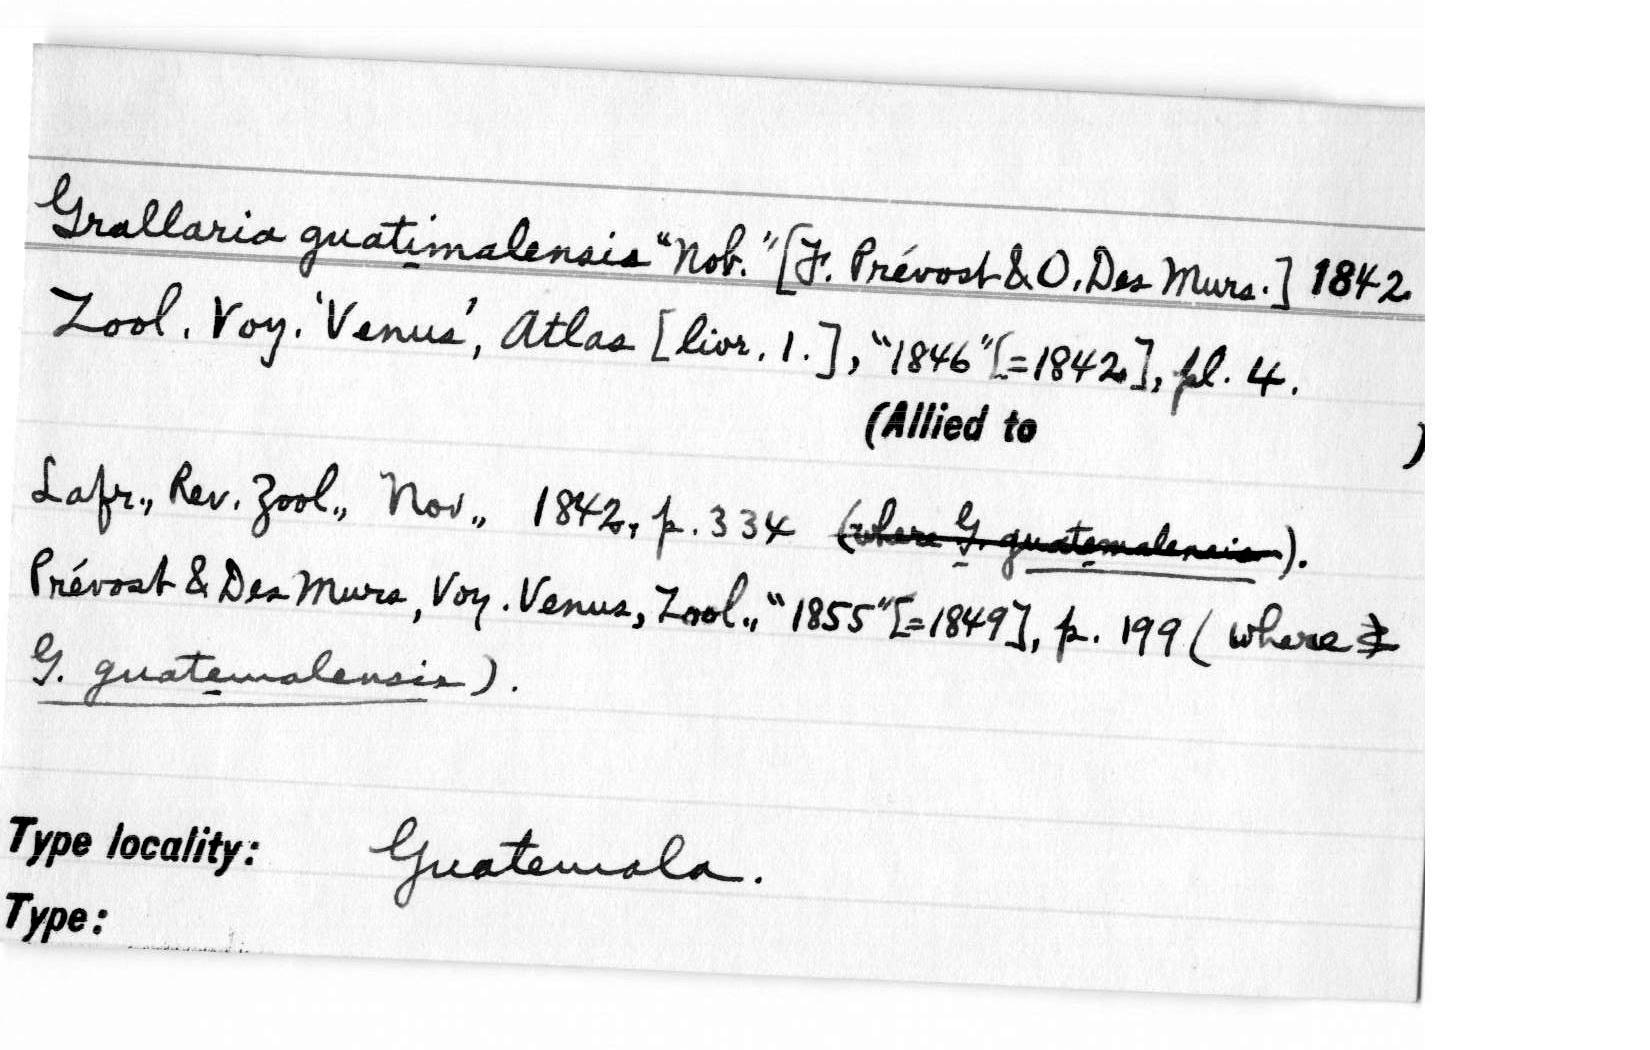 Grallaria guatimalensis "Nob." [F. Prévost & O. Des Murs.] 1842
Zool. Voy. 'Venus', Atlas [livr. 1.], "1846" [=1842], pl. 4.
(Allied to )
Lafr., Rev. Zool., Nov., 1842, p. 334 (where G. guatemalensis).
Prévost & Des Murs, Voy. Venus, Zool., "1855" [=1849], p. 199 (where
G. guatemalensis).
Type locality: Guatemala.
Type: